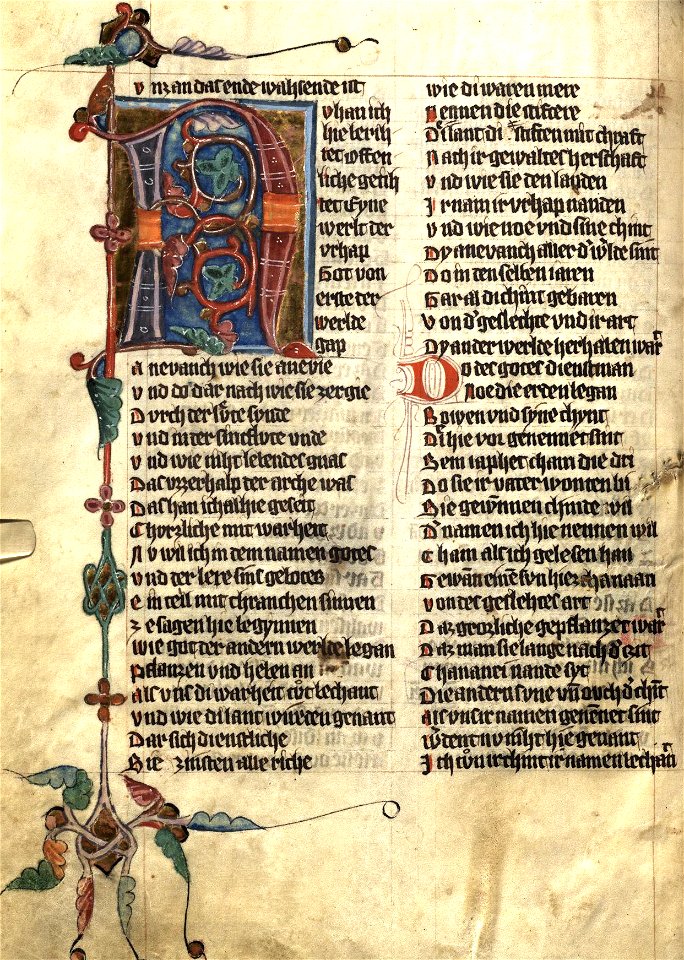 vnz an daz ende wahsende ist
N
v han ich
hie berih
tet offen
liche gesch
tet Eyne
werlt der
vrhap
Got von
erste der
werlde
gap
Anevanch wie sie anevie
vnd do dar nach wie sie zergie
Dvrch der svͦte synde
vnd mit der sintflvte vnde
vnd wie niht lebendes gnas
Daz vzzerhalp der arche was
Das han ich alhie geseit
Chvrzliche mit warheit
Nv wil ich in dem namen gotes
vnd der lere sins gebotes
ein teil mit chranchen sinnen
ze sagen hie begynnen
wie got der andern werlde began
Pflanzen vnd helen an
Als vns di warheit tvͦt bechant
vnd wie di lant wurden genant
Dar sich dienstliche
Hie zinsten alle riche
wie di waren mere
Nennen die stiftere
Di lant di stiften mit chraft
Nach ir gewaltes herschaft
vnd wie sie den landen
Ir nam ir vrhap nanden
vnd wie noe vnd sine chint
Dy anevanch aller d' w'lde sint
Do in den selben iaren
Gar al di chint gebaren
von d' geslechte vnd ir art
Dy ander werlde herhaben wart
Do der gotes dienstman
Noe die erden began
Bowen vnd syne chynt
Di hie vor genennet sint
Sem iaphet cham die dri
Do sie ir vater wonten bi
Sie gewunnen chinde vil
D' namen ich hie nennen wil
Cham als ich gelesen han
Gewan einē svn hiez chanaan
von des geslehtes art
Daz grozliche gepflanzet wart
Daz man sie lange nach d' zit
Chananei nande syt
Die andern syne vñ ovch d' chint
Als vns ir namen genēnet sint
W'dent nv niht hie genant
Ich tvͦn iv chint ir namen bechant